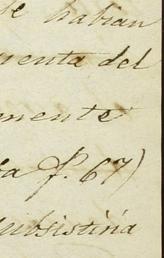 se habian
renta del
mente
fa f. 67)
subsistiria